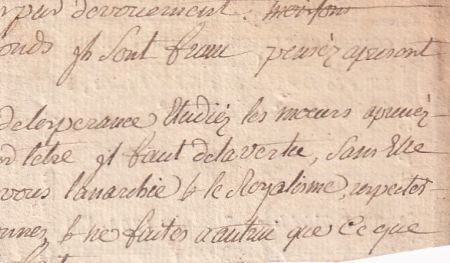 pur devouement.
onds ils sont franc pensez apresent
de lesperance Etudiez les moeurs
il faut dela vertu, sans Elle
vous l'anarchie & le Royalisme, respectez
onnez, & ne faites a autrui que ce que